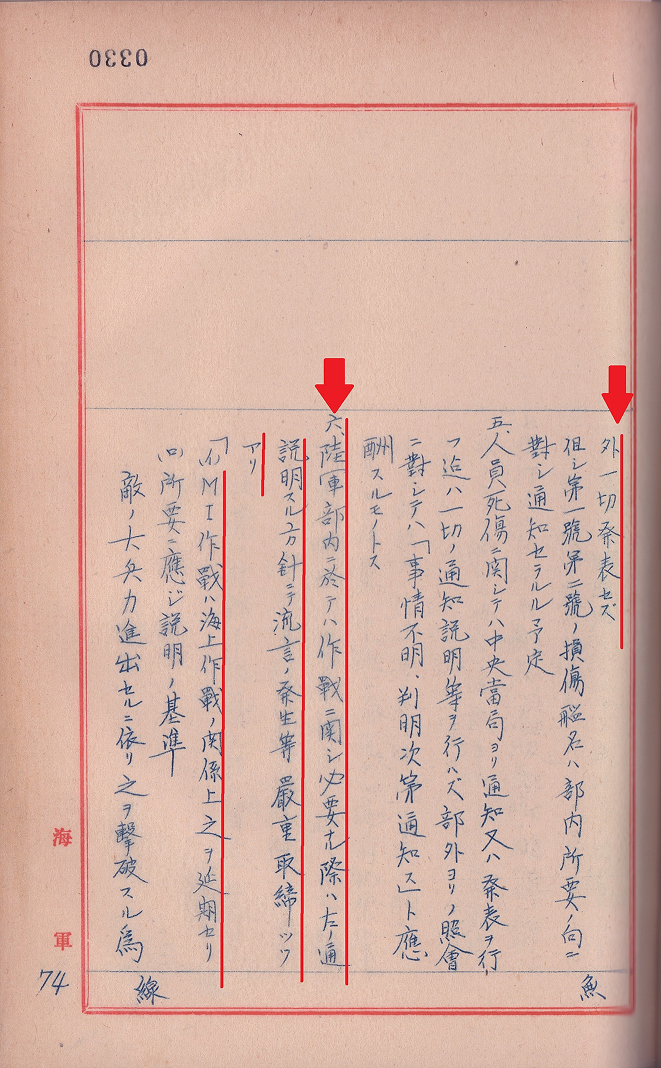 0330
外一切発表セズ
但シ第一號第二號ノ損傷艦名ハ部内所要ノ向ニ
對シ通知セラルル予定
五、人員死傷ニ関シテハ中央當局ヨリ通知又ハ発表ヲ行
フ迄ハ一切ノ通知説明等ヲ行ハズ部外ヨリノ照會
ニ對シテハ「事情不明、判明次第通知ス」ト應
酬スルモノトス
六、陸軍部内ニ於テハ作戰ニ関シ必要ナル際ハ左ノ通
説明スル方針ニテ流言ノ発生等嚴重取締ツツ
アリ
「(イ)MI作戰ハ海上作戰ノ関係上之ヲ延期セリ
(ロ)所要ニ應ジ説明ノ基準
敵ノ大兵力進出セルニ依リ之ヲ撃破スル爲
魚
線
海軍
74